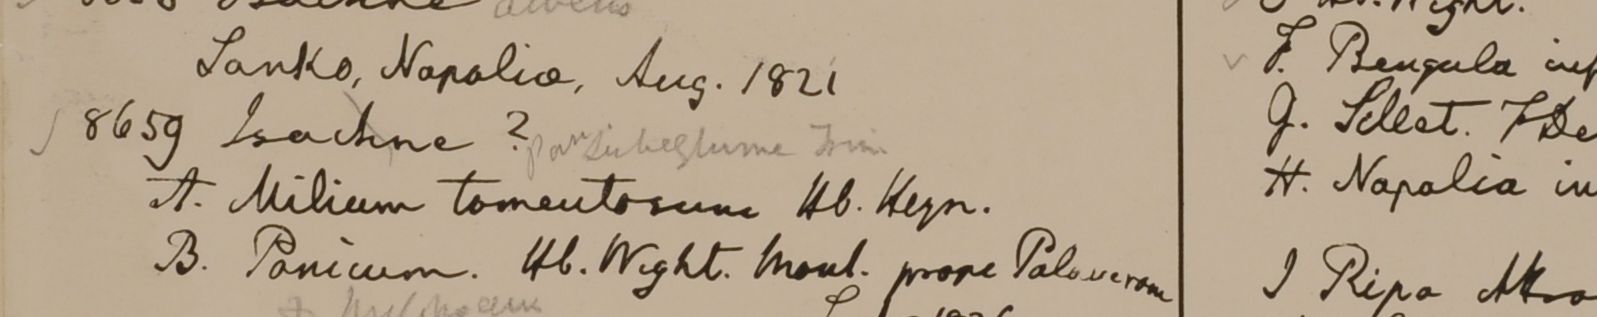 Isachne
Sanko, Napalia, Aug. 1821
8659 Isachne ?
A. Milium tomentosum Hb. Heyn.
B. Panicum. Hb. Wight. Mont. prope Palaveram
Hb. Wight.
F. Bengula
G. Sillet. F De
H. Napalia in
I Ripa